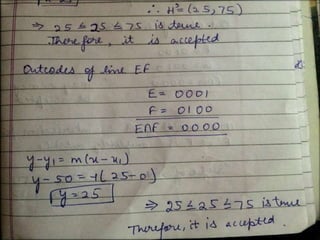 ∴ H³ = (25, 75)
⇒ 25 ≤ 25 ≤ 75 is true.
Therefore, it is accepted
Outcodes of line EF
E = 0001
F = 0100
E∩F = 0000
y-y₁ = m(x-x₁)
y-50 = -1(25-0)
y = 25
⇒ 25 ≤ 25 ≤ 75 is true
Therefore, it is accepted.